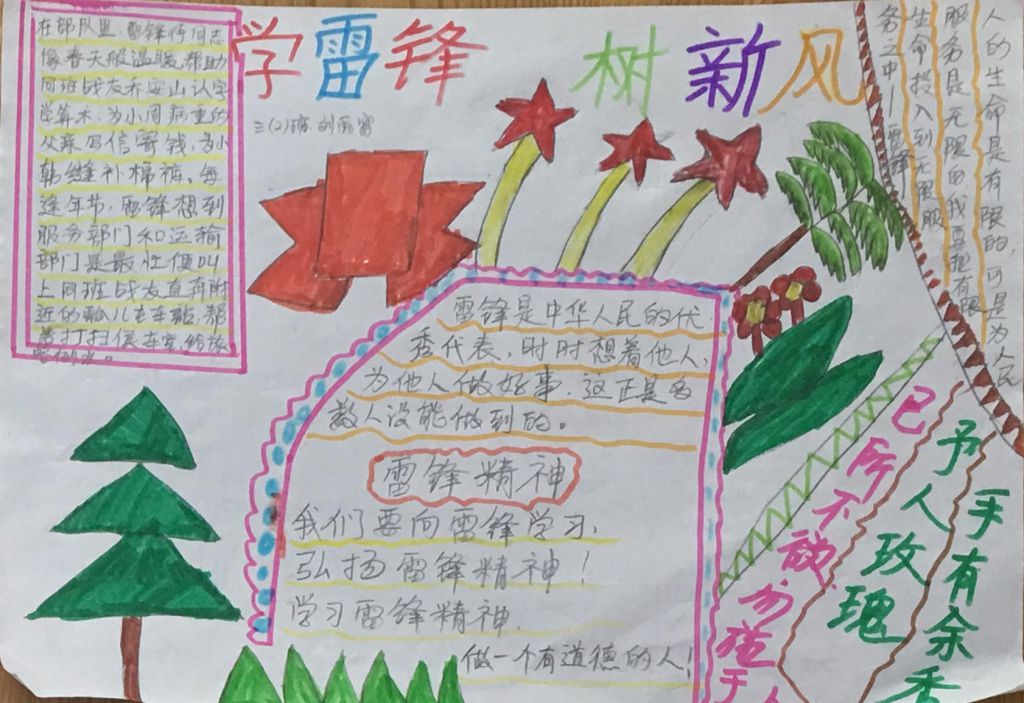 学雷锋 树新风
三(2)班 刘雨
在部队里,雷锋待同志
像春天般温暖,帮助
同班战友乔安山认字
学算术,为小周病重的
父亲写信寄钱,为小
韩缝补棉裤。每
逢年节,雷锋想到
服务部门和运输
部门是最忙便叫
上同班战友直奔附
近的瓢儿屯车站,帮
着打扫候车室,给旅
客倒水。
人的生命是有限的,可是为人民
服务是无限的我要把有限
生命投入到无限服
务之中—雷锋
雷锋是中华人民的优
秀代表,时时想着他人,
为他人做好事,这正是多
数人没能做到的。
雷锋精神
我们要向雷锋学习,
弘扬雷锋精神!
学习雷锋精神,
做一个有道德的人!
己所不欲勿施于人
予人玫瑰
手有余香